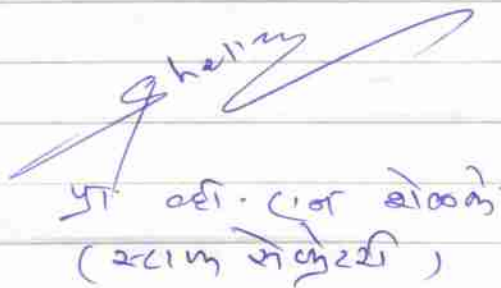 प्रा व्ही. एन शेळके
(स्टाफ सेक्रेटरी)